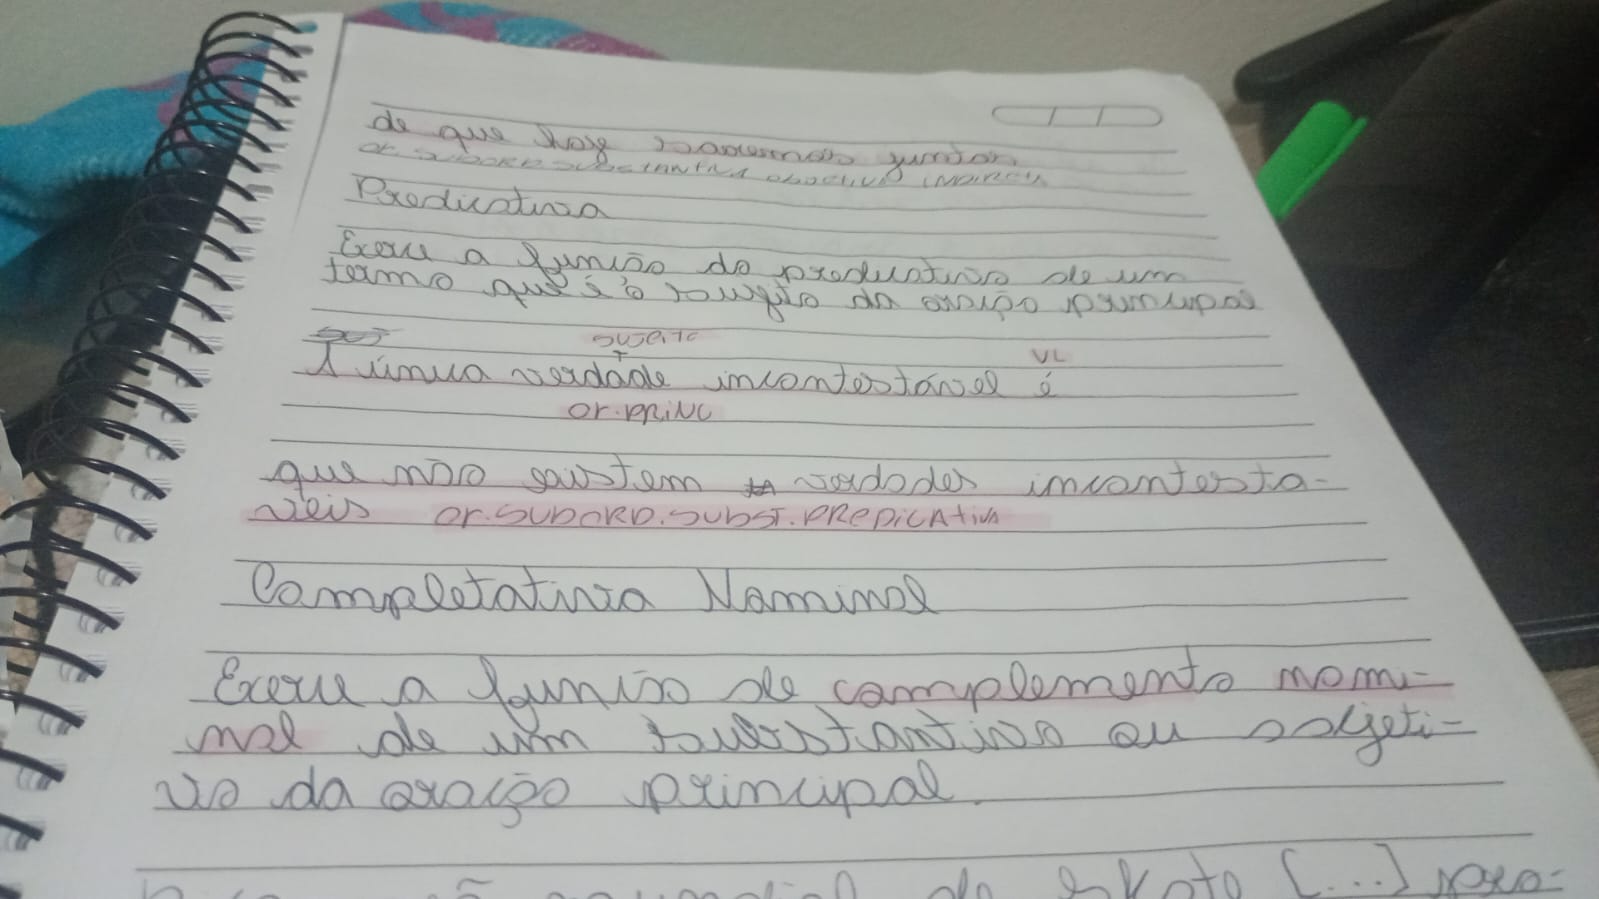 de que hoje sairemos juntos
or. SUBORD. SUBSTANTIVA OBJETIVA INDIRETA
Predicativa
Exerce a função do predicativo de um
termo que é o sujeito da oração principal
SUJEITO
VL
A única verdade incontestável é
or. PRINC
que não existem verdades incontestá-
veis or. SUBORD. SUBST. PREDICATIVA
Completativa Nominal
Exerce a função de complemento nomi-
nal de um substantivo ou adjeti-
vo da oração principal.
de skate [...] para-